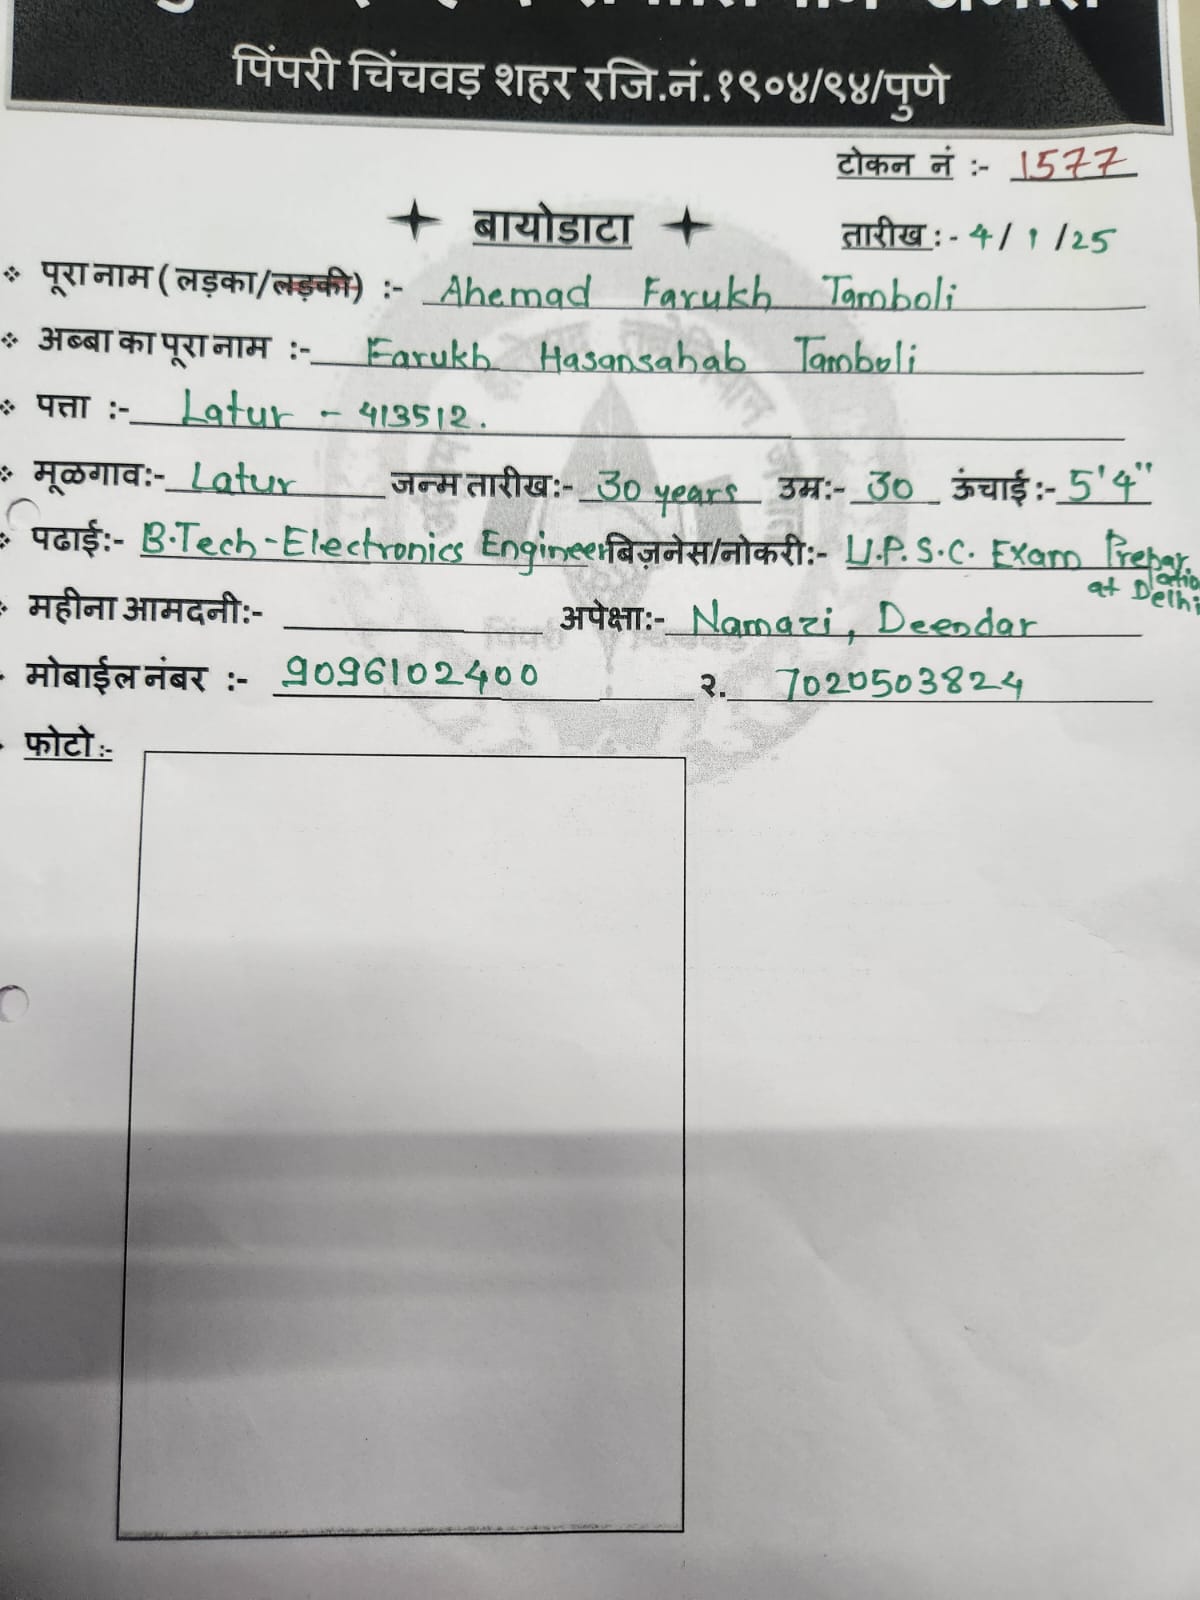 पिंपरी चिंचवड़ शहर रजि.नं.१९०४/९४/पुणे
टोकन नं :- 1577
बायोडाटा
तारीख :- 4/1/25
पूरा नाम (लड़का/लड़की) :- Ahemad Farukh Tamboli
अब्बा का पूरा नाम :- Farukh Hasansahab Tamboli
पत्ता :- Latur - 413512.
मूळगाव:- Latur जन्म तारीख:- 30 years उम्र:- 30 ऊंचाई :- 5'4"
पढाई:- B.Tech-Electronics Engineer बिज़नेस/नोकरी:- U.P.S.C. Exam Preparation
at Delhi
महीना आमदनी:- अपेक्षा:- Namazi, Deendar
मोबाईल नंबर :- 9096102400 २. 7020503824
फोटो :-